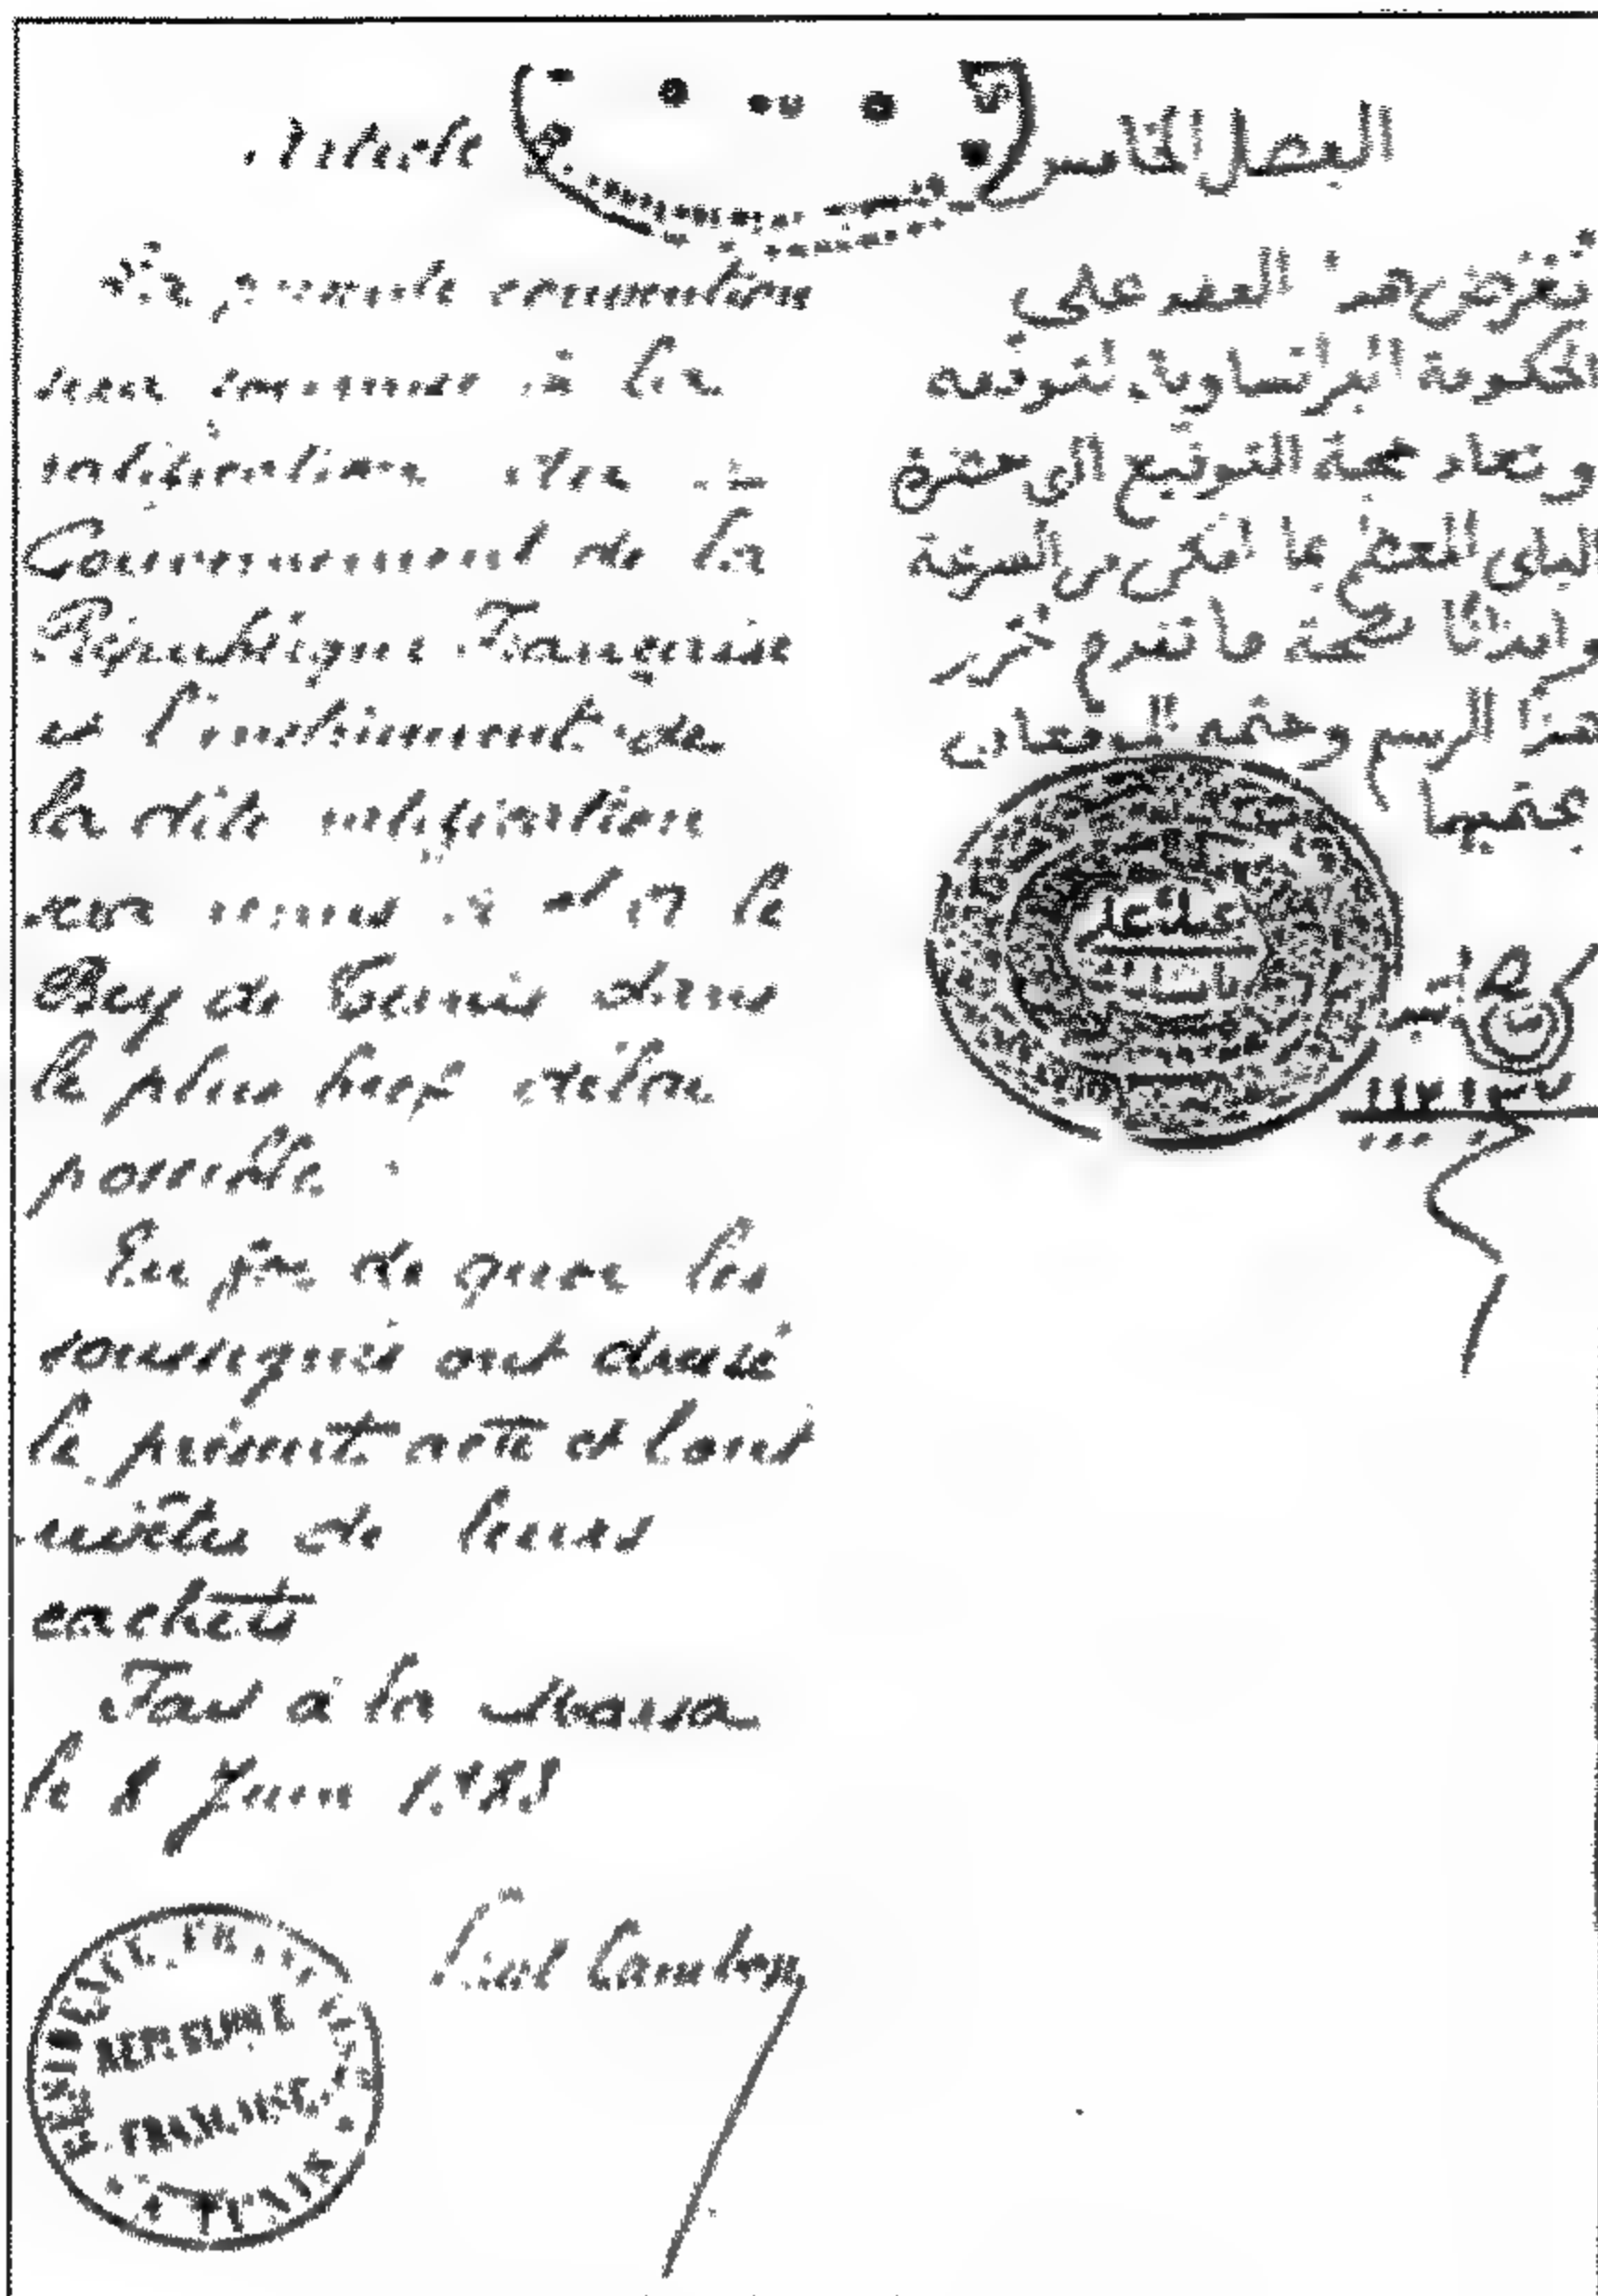 Article
La présente convention
sera soumise à la
ratification du
Gouvernement de la
République Française
et l'instrument de
la dite ratification
sera remis à S A le
Bey de Tunis dans
le plus bref délai
possible.
En foi de quoi les
soussignés ont dressé
le présent acte et l'ont
revêtu de leurs
cachets
Fait à la Marsa
le 8 Juin 1883
Paul Cambon
RESIDENCE FRANÇAISE
REPUBLIQUE
FRANÇAISE
TUNIS
الفصل الخامس
تعرض هذا العقد على
الحكومة الفرانساوية لتوقعه
وتعاد حجة التوقيع الى حضرة
الباي المعظم بما امكن من السرعة
واثباتا لصحة ما تقدم حرر
هذا الرسم وختمه الموقعان
بختميهما
علي